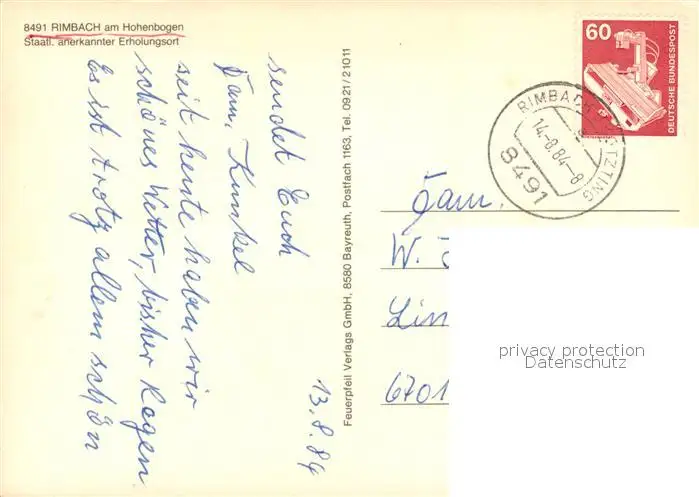 8491 RIMBACH am Hohenbogen
Staatl. anerkannter Erholungsort
13.8.84
sendet Euch
Fam. Kunkel
seit heute haben wir
schönes Wetter, bisher Regen.
Es ist trotz allem schön
Feuerpfeil Verlags GmbH, 8580 Bayreuth, Postfach 1163, Tel. 0921/21011
60
DEUTSCHE BUNDESPOST
14.-8.84-8
8491
Fam.
W.
Lin
6701
privacy protection
Datenschutz